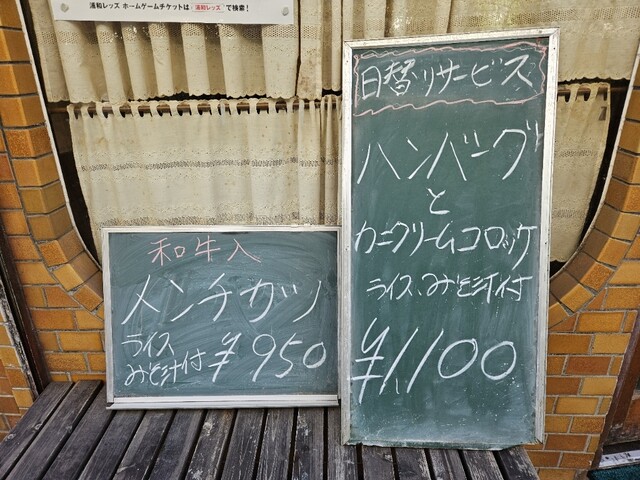 浦和レッズ ホームゲームチケットは 浦和レッズ で検索!
和牛入
メンチカツ
ライス
みそ汁付
¥950
日替りサービス
ハンバーグ
と
カニクリームコロッケ
ライス、みそ汁付
¥1,100